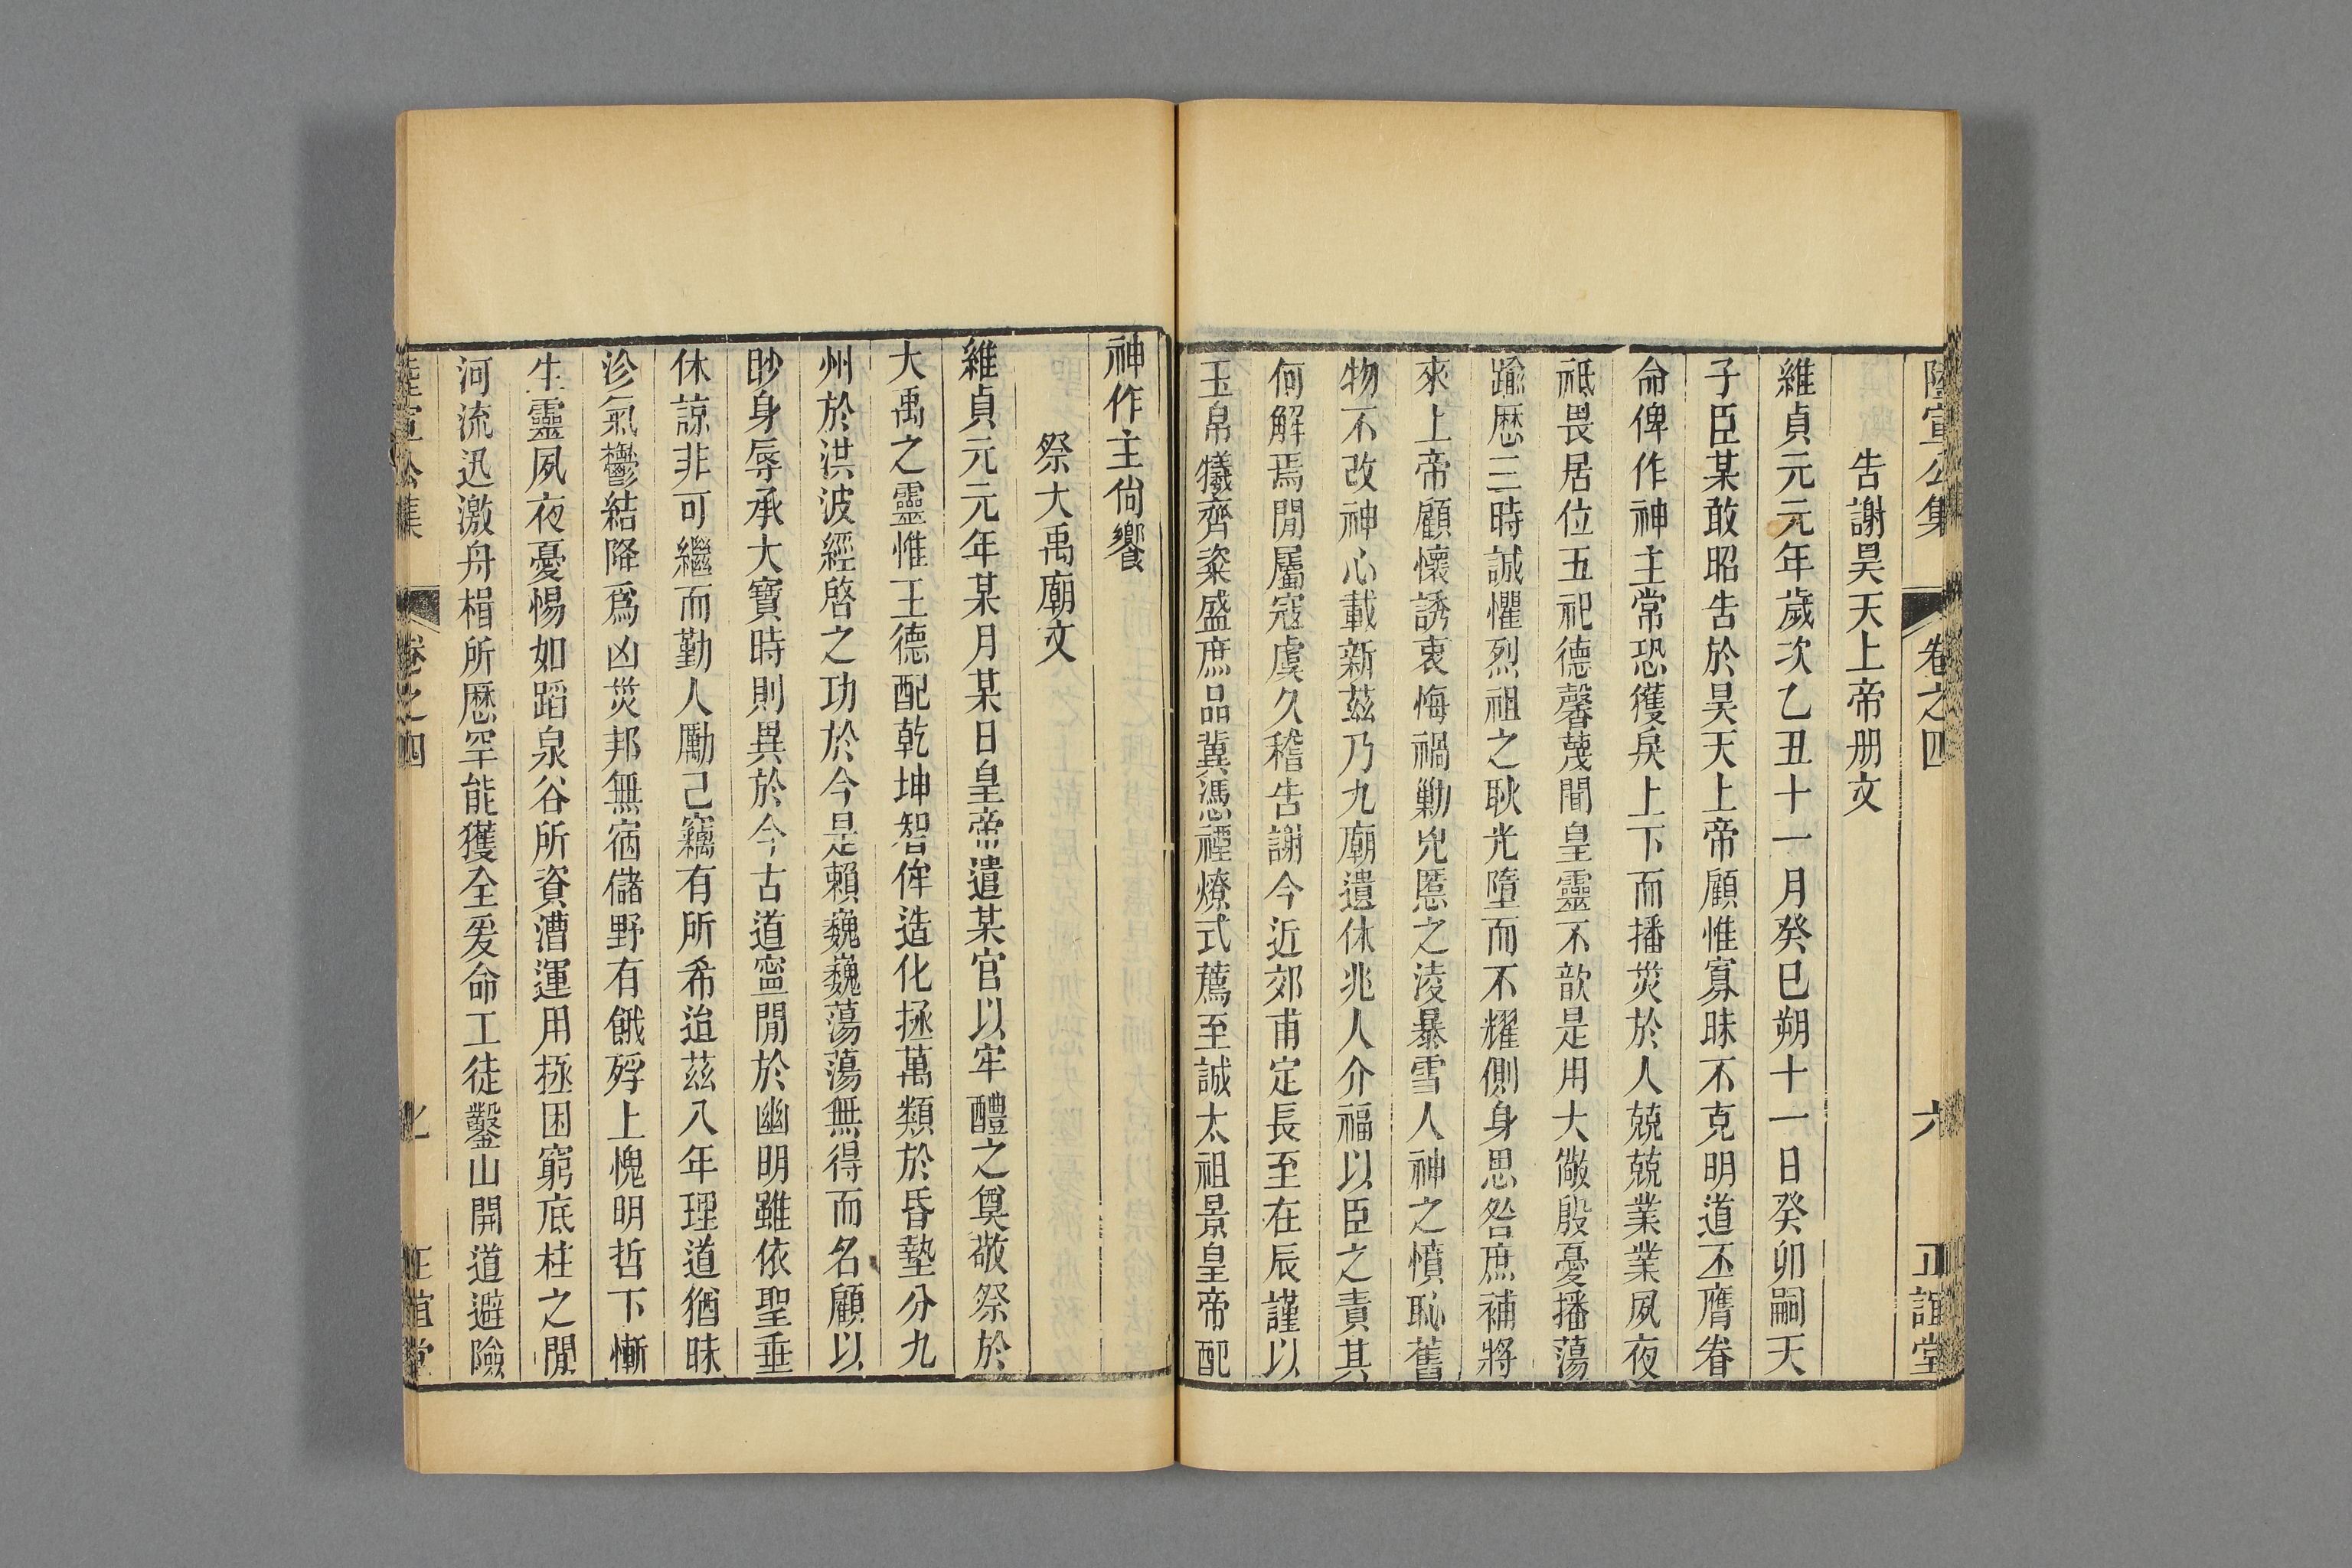 陸宣公集 卷之四 六 正誼堂
告謝昊天上帝册文
維貞元元年歲次乙丑十一月癸巳朔十一日癸卯嗣天
子臣某敢昭告於昊天上帝顧惟寡昧不克明道丕膺眷
命俾作神主常恐獲戾上下而播災於人兢兢業業夙夜
祗畏居位五祀德馨蔑聞皇靈不歆是用大儆殷憂播蕩
踰歷三時誠懼烈祖之耿光墮而不耀側身思咎庶補將
來上帝顧懷誘衷悔禍勦兇慝之淩暴雪人神之憤恥舊
物不改神心載新茲乃九廟遺休兆人介福以臣之責其
何解焉閒屬寇虞久稽告謝今近郊甫定長至在辰謹以
玉帛犧齊粢盛庶品冀憑禋燎式薦至誠太祖景皇帝配
神作主尙饗
祭大禹廟文
維貞元元年某月某日皇帝遣某官以牢醴之奠敬祭於
大禹之靈惟王德配乾坤智侔造化拯萬類於昏墊分九
州於洪波經啓之功於今是賴巍巍蕩蕩無得而名顧以
眇身辱承大寶時則異於今古道寍閒於幽明雖依聖垂
休諒非可繼而勤人勵己竊有所希迨茲八年理道猶昧
沴氣鬱結降爲凶災邦無宿儲野有餓殍上愧明哲下慚
生靈夙夜憂惕如蹈泉谷所資漕運用拯困窮底柱之閒
河流迅激舟楫所歷罕能獲全爰命工徒鑿山開道避險
陸宣公集 卷之四 七 正誼堂